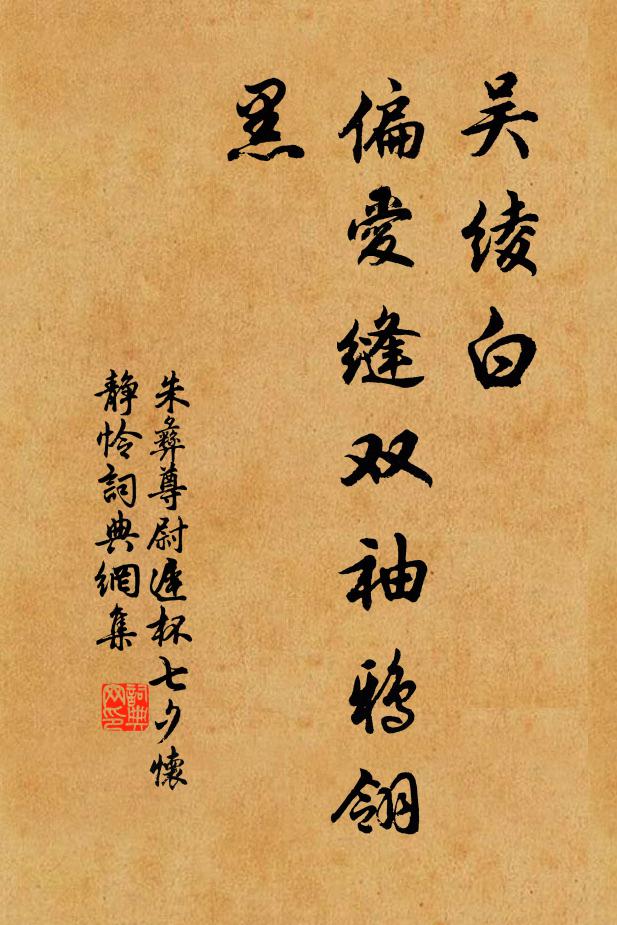 吴绫白
偏愛縫双袖鸦翎
黑
朱彝尊尉遲杯七夕懷
静怜詞典網集
詞典
网印